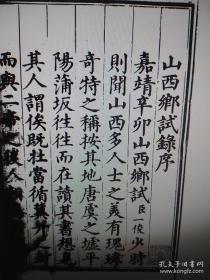 山西鄉試錄序
嘉靖辛卯山西鄉試臣一俊少時
則聞山西多人士之美有瑰瑋
奇特之稱按其地唐虞之墟平
陽蒲坂往往而在讀其書想見
其人謂俟既壯當循冀州之
而與二帝之